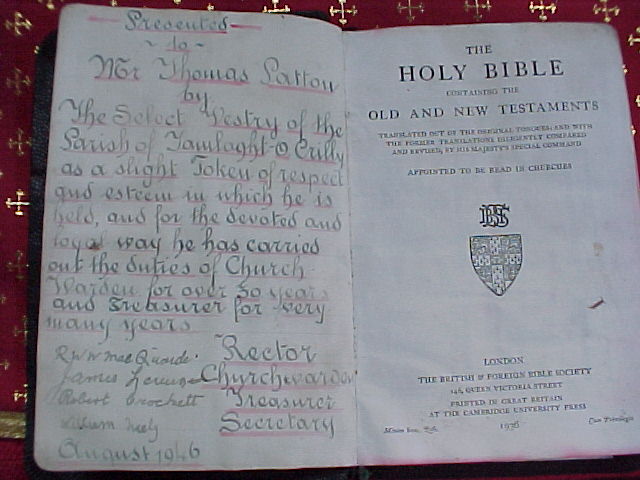 Presented
~ to ~
Mr Thomas Patton
by
The Select Vestry of the
Parish of Tamlaght-O Crilly
as a slight Token of respect
and esteem in which he is
held, and for the devoted and
loyal way he has carried
out the duties of Church
Warden for over 30 years
and Treasurer for very
many years
Rector
James Churchwarden
Robert Crochett Treasurer
William Neely Secretary
August 1946
THE
HOLY BIBLE
CONTAINING THE
OLD AND NEW TESTAMENTS
TRANSLATED OUT OF THE ORIGINAL TONGUES: AND WITH
THE FORMER TRANSLATIONS DILIGENTLY COMPARED
AND REVISED, BY HIS MAJESTY'S SPECIAL COMMAND
APPOINTED TO BE READ IN CHURCHES
BFBS
LONDON
THE BRITISH & FOREIGN BIBLE SOCIETY
146, QUEEN VICTORIA STREET
PRINTED IN GREAT BRITAIN
AT THE CAMBRIDGE UNIVERSITY PRESS
1936
Cum Privilegio